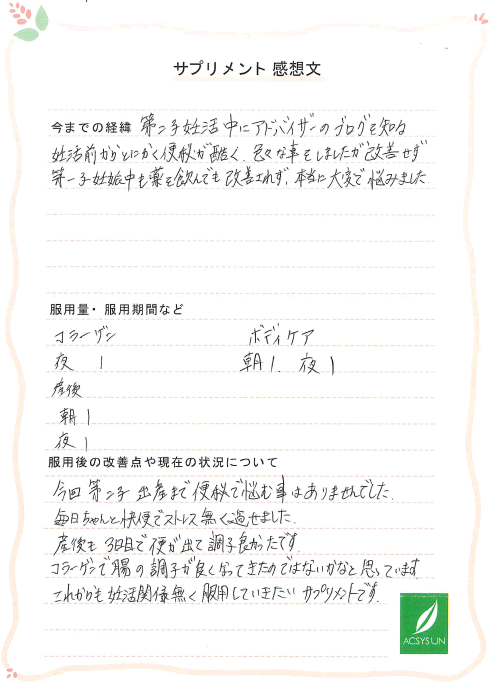 サプリメント 感想文
今までの経緯 第二子妊活中にアドバイザーのブログを知る
妊活前からとにかく便秘が酷く、色々な事をしましたが改善せず
第一子妊娠中も薬を飲んでも改善されず、本当に大変で悩みました
服用量・服用期間など
コラーゲン ボディケア
夜 1 朝1. 夜1
産後
朝1
夜1
服用後の改善点や現在の状況について
今回第二子出産まで便秘で悩む事はありませんでした.
毎日ちゃんと快便でストレス無く過せました.
産後も3日目で便が出て調子良かったです.
コラーゲンで腸の調子が良くなってきたのではないかなと思っています
これからも妊活関係無く服用していきたいサプリメントです.
ACSYSUN